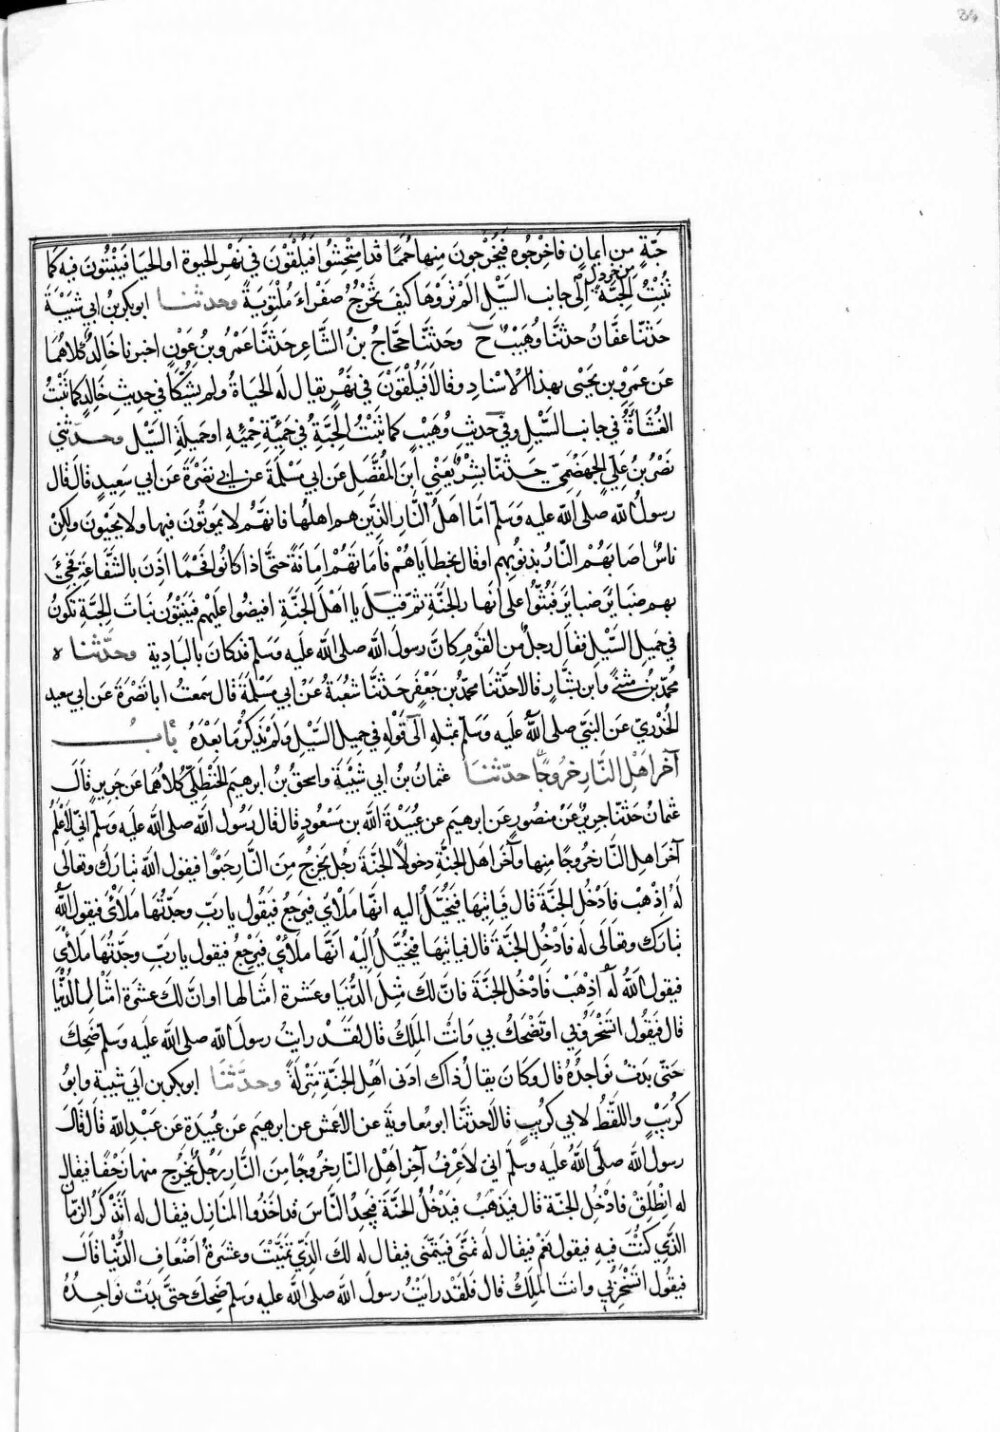 34
حَبَّةٍ من ايمانٍ فاخرجوه فَيُخْرَجونَ منها حُمَمًا قد امتُحِشوا فيُلْقَوْنَ في نَهْرِ الحيوة او الحيا فَيَنْبُتُونَ فيه كما
من خردل
تَنْبُتُ الحِبَّةُ اِلى جانب السَّيْلِ المْ تَرَوْهَا كيفَ تَخْرُجُ صَفْرَاءَ مُلْتَوِيَةً وحدثنا ابو بكر بنُ ابي شَيْبَةَ
حَدثنا عَفّانُ حدثنا وُهَيْبٌ ح وحَدثنَا حَجّاجُ بنُ الشَّاعِرِ حَدثنَا عَمْرو بن عَوْنٍ اخبرنا خَالِدٌ كلاهُمَا
عَن عَمرو بن يَحْيٰى بهذا الاسْناد وقَالا فَيُلْقَوْنَ في نَهْرٍ يقال لَه الحيَاةُ ولم يَشُكّا في حديثِ خَالِدٍ كما تَنْبُتُ
الغُثَاءَةُ في جانب السَّيْلِ وفي حَديث وُهَيْبٍ كما تَنْبُتُ الحِبَّةُ في حَمِئَةٍ حَمِئَةٍ او حَمِيلَةِ السَّيْل وحدّثني
نَصْرُ بنُ عَلِيٍّ الجَهْضَمِيُّ حَدثنَا بِشْرٌ يَعْنِي ابنَ المُفَضَّلِ عَن ابي مَسْلمَةَ عن ابي نَضْرَةَ عَن ابي سَعِيدٍ قالَ قال
رسولُ الله صلى الله عليه وَسَلم امّا اهلُ النَّارِ الذين هم اهلها فانَّهُم لا يموتُون فيها ولا يحْيَوْنَ ولكِنْ
ناسٌ اصَابَهُمْ النَّارُ بذنوبِهم او قال بخطاياهُمْ فَاَمَاتَهُمْ اِمَاتَةً حَتّٰى اذا كانُوا فَحْمًا اذِنَ بالشَّفَاعَةِ فجِئَ
بهم ضَبَايِرَ ضبايِرَ فَبُثُّوا على انهار الجَنَّةِ ثمّ قيلَ يا اهْلَ الجَنَّةِ افيضُوا علَيْهِم فَيَنْبُتُونَ نباتَ الحِبَّةِ تكُونُ
في حَمِيلِ السَّيْلِ فقال رجلٌ من القَوْمِ كانَّ رسولَ الله صلى الله علَيه وَسَلم قد كانَ بالبَادِية وحدَّثناه
محمّدُ بن مثنّى وابن بَشَّارٍ قالا حَدَّثنَا محمّدُ بن جَعْفَرٍ حَدثنَا شُعبَةُ عَنْ ابي مَسْلمَة قال سَمعتُ ابا نَضْرَةَ عَن ابي سعيد
الخُدريّ عن النبَيّ صلى اللهُ علَيه وَسَلم بمثلهِ الى قَوْلِهِ في حميل السَّيْلِ وَلَمْ يَذكُرْ مَا بَعْدَهُ بَاب
آخر اهْلِ النَّارِ خروجًا حدّثنا عثمانُ بنُ ابي شَيْبَةَ واسحٰقُ بنُ ابرهيمَ الحَنْظَلِيُّ كلاهُمَا عَن جَرِيرٍ قالَ
عُثمانُ حَدثنَا جريرٌ عَنْ منصُورٍ عَن ابرهيم عن عَبِيدَةَ عن عبد الله بن مَسْعُودٍ قالَ قال رَسُولُ الله صلى الله علَيه وَسَلم انّي لَاَعْلَمُ
آخرَ اهلِ النَّار خروجًا منها وآخرَ اهل الجَنَّةِ دخولًا الجَنَّةَ رَجُلٌ يخرُجُ مِنَ النَّارِ حَبْوًا فيقول الله تبارك وتعالى
لَهُ اذْهَبْ فَادْخُلِ الجَنَّةَ قال فَيَاتيهَا فَيُخَيَّلُ اليه انّهَا مَلْاٰى فيَرجعُ فيَقُولُ يا ربِّ وجَدْتُهَا مَلْاٰى فيقولُ اللهُ
تبَارك وتعالى لَهُ فَادْخُلِ الجَنَّةَ قال فياتيها فَيُخَيَّلُ اِلَيهِ اَنّهَا مَلْاٰى فَيَرْجِعُ فيقول يا ربِّ وجَدْتُهَا مَلْاٰى
فيقولُ اللهُ لَهُ اُذْهَبْ فَادْخُلِ الجَنَّةَ فانَّ لَكَ مِثلَ الدُّنيَا وعَشَرةَ امثالها او انّ لك عشَرةَ امثالِ الدُّنْيَا
قال فيَقُول اتسْخَرُ بي او تَضْحَكُ بي وَانْتَ المَلِكُ قال لقَد رايتُ رسولَ الله صلى الله عليه وَسَلم ضَحِكَ
حَتّى بَدَتْ نواجِذُهُ قال وكانَ يقالُ ذاك ادنى اهْلِ الجَنَّةِ مَنْزلَةً وحدَّثنَا ابو بكر بن ابي شيبة وابُو
كُرَيْبٍ واللفظُ لابي كُرَيبٍ قالا حدثنَا ابو معاويةَ عن الاعْمَش عن ابرهيم عن عَبِيدَةَ عَن عَبدِ الله قالَ قالَ
رسول الله صلّى اللهُ علَيه وسلم اني لَاَعْرِفُ آخِرَ اهْلِ النار خروجًا مِنَ النَّارِ رَجُلٌ يَخْرُج منها زَحْفًا فيقال
له انْطَلِقْ فادخُلِ الجنّة قال فيَذهَبُ فيَدْخُلُ الجَنَّةَ فيجدُ النَّاسَ قد اخَذُوا المَنَازِلَ فيقال له اتَذْكُرُ الزمَانَ
الذي كنتَ فيهِ فيقول نَعَمْ فيقال له تَمَنَّ فيتَمَنّى فيقال له لك الذي تمنَّيْتَ وعشَرةُ اضْعَافِ الدُّنْيا قالَ
فيقُول اتسْخَرُ بي وانتَ المَلِكُ قال فلقد رايْتُ رسولَ الله صلى الله عليه وَسَلم ضَحِكَ حَتّى بدَتْ نواجِذُهُ